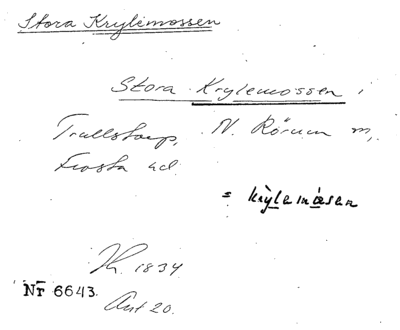 Stora Krylemossen
Stora Krylemossen i
Trullstorp, N. Rörum sn,
Frosta hd
= krylemåsen
Kr. 1834
Nr 6643.
Ant 20.